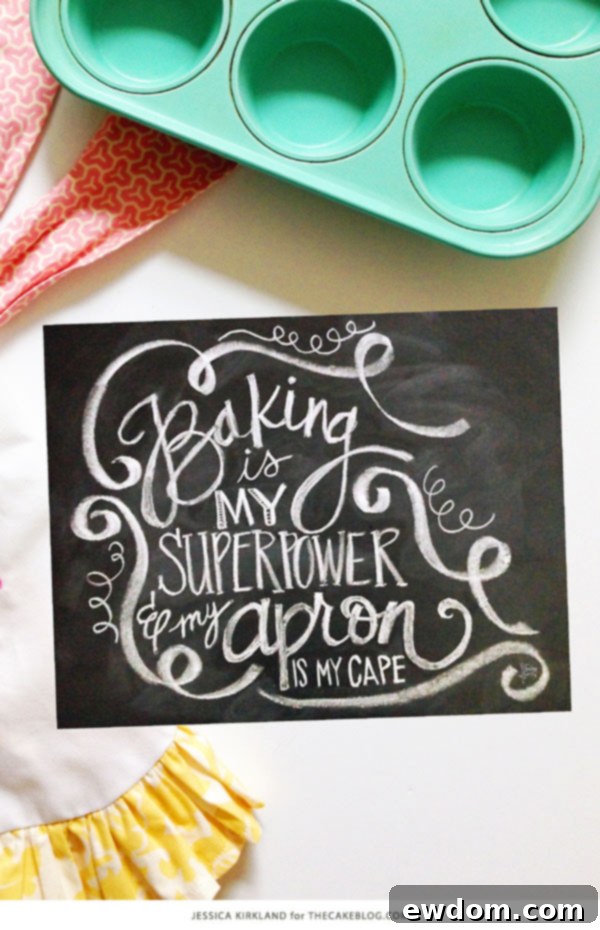 Baking
is
MY
SUPERPOWER
& my apron
IS MY CAPE
JESSICA KIRKLAND for THECAKEBLOG.CO
ewdom.com